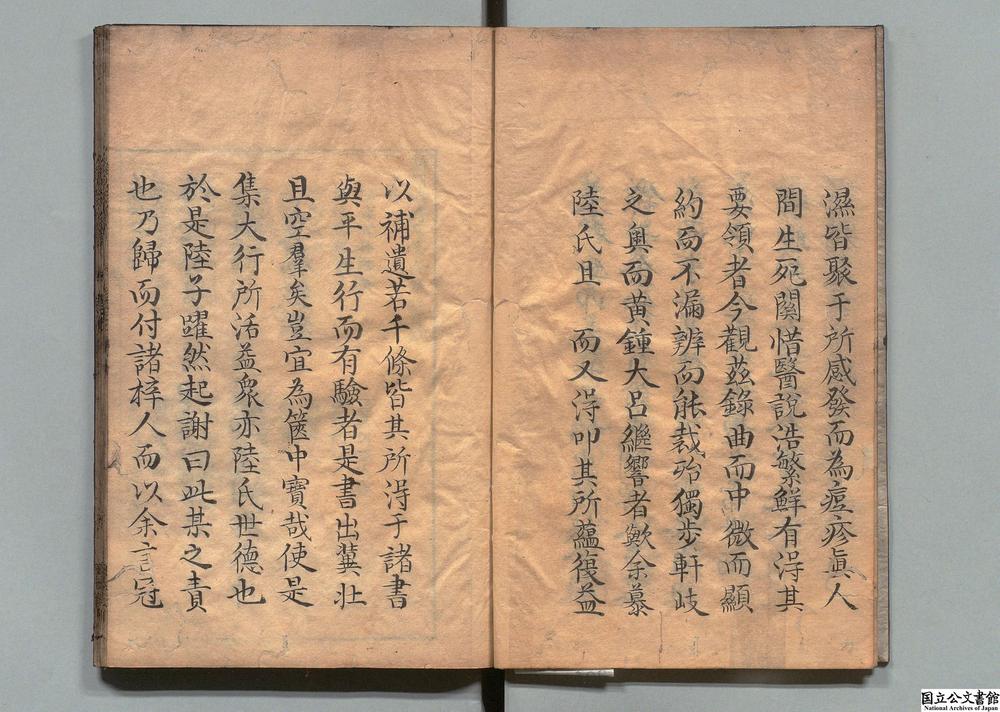 濕皆聚于所感發而為痘疹眞人
間生死關惜醫說浩繁鮮有淂其
要領者今觀茲錄曲而中微而顯
約而不漏辨而能裁殆獨步軒岐
之奥而黄鍾大吕繼響者歟余慕
陸氏且 而又淂叩其所蘊復益
以補遺若千條皆其所淂于諸書
與平生行而有驗者是書出冀北
且空羣矣豈宜為篋中寶哉使是
集大行所活益衆亦陸氏世德也
於是陸子躍然起謝曰此某之責
也乃歸而付諸梓人而以余言冠
国立公文書館
National Archives of Japan